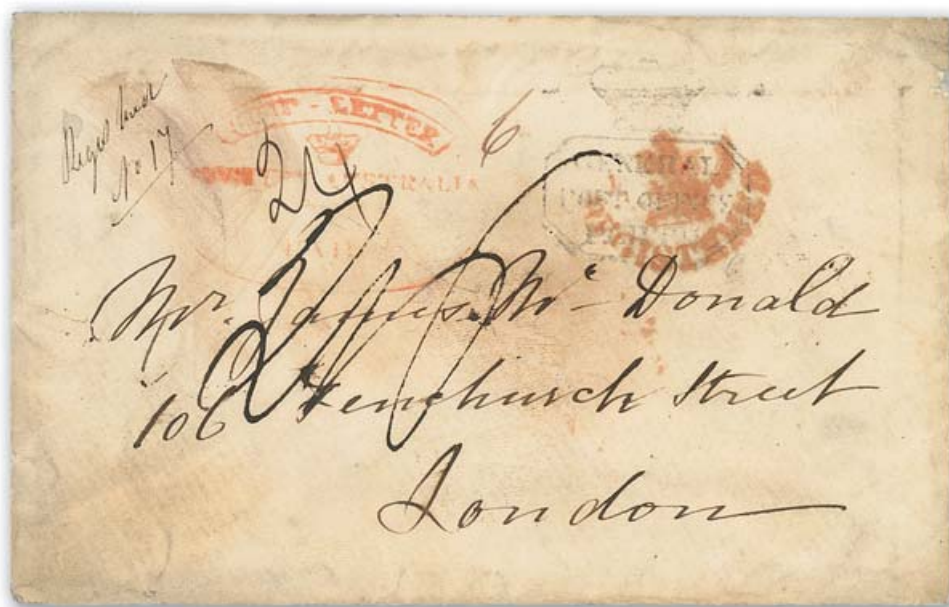 Registered
No 17
LETTER
24
6
SOUTH AUSTRALIA
PAID
GENERAL
POST OFFICE
REGISTERED
Mr. James Mc Donald
106 Fenchurch Street
London